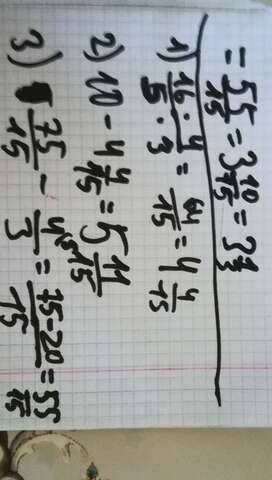 = 55/15 = 3 10/15 = 3 1/3
1) 16/5 · 4/3 = 64/15 = 4 4/15
2) 10 - 4 4/15 = 5 11/15
3) 75/15 - 4\5/3 = 75-20/15 = 55/15